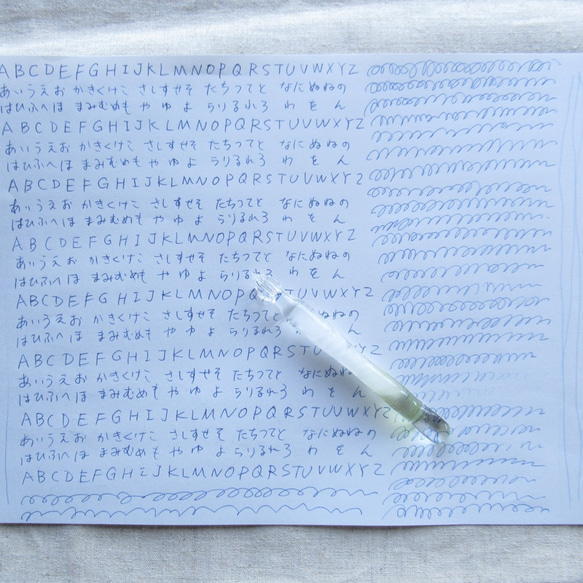 ABCDEFGHIJKLMNOPQRSTUVWXYZ
あいうえお かきくけこ さしすせそ たちつてと なにぬねの
はひふへほ まみむめも や ゆ よ らりるれろ わ を ん
ABCDEFGHIJKLMNOPQRSTUVWXYZ
あいうえお かきくけこ さしすせそ たちつてと なにぬねの
はひふへほ まみむめも や ゆ よ らりるれろ わ を ん
ABCDEFGHIJKLMNOPQRSTUVWXYZ
あいうえお かきくけこ さしすせそ たちつてと なにぬねの
はひふへほ まみむめも や ゆ よ らりるれろ わ を ん
ABCDEFGHIJKLMNOPQRSTUVWXYZ
あいうえお かきくけこ さしすせそ たちつてと なにぬねの
はひふへほ まみむめも や ゆ よ らりるれろ わ を ん
ABCDEFGHIJKLMNOPQRSTUVWXYZ
あいうえお かきくけこ さしすせそ たちつてと なにぬねの
はひふへほ まみむめも や ゆ よ らりるれろ わ を ん
ABCDEFGHIJKLMNOPQRSTUVWXYZ
あいうえお かきくけこ さしすせそ たちつてと なにぬねの
はひふへほ まみむめも や ゆ よ らりるれろ わ を ん
ABCDEFGHIJKLMNOPQRSTUVWXYZ
あいうえお かきくけこ さしすせそ たちつてと なにぬねの
はひふへほ まみむめも や ゆ よ らりるれろ わ を ん
ABCDEFGHIJKLMNOPQRSTUVWXYZ